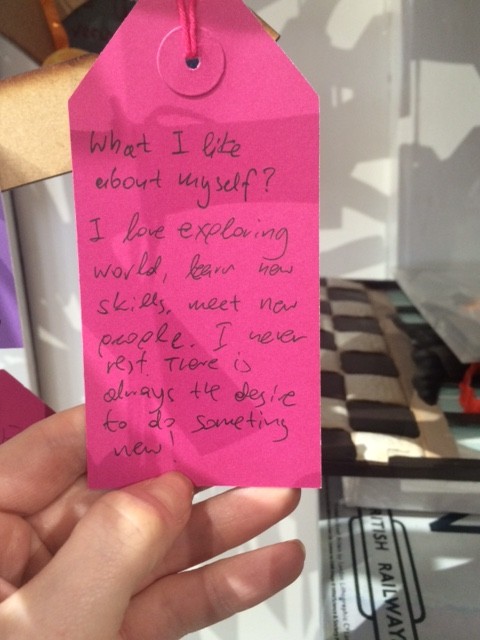 What I like
about myself?
I love exploring
world, learn new
skills, meet new
people. I never
rest. There is
always the desire
to do someting
new!
BRITISH RAILWAY